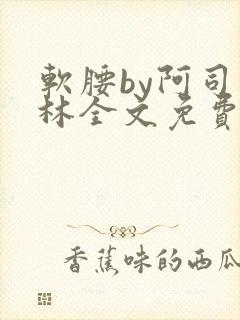 軟腰by阿司
林全文免費
香蕉味的西瓜